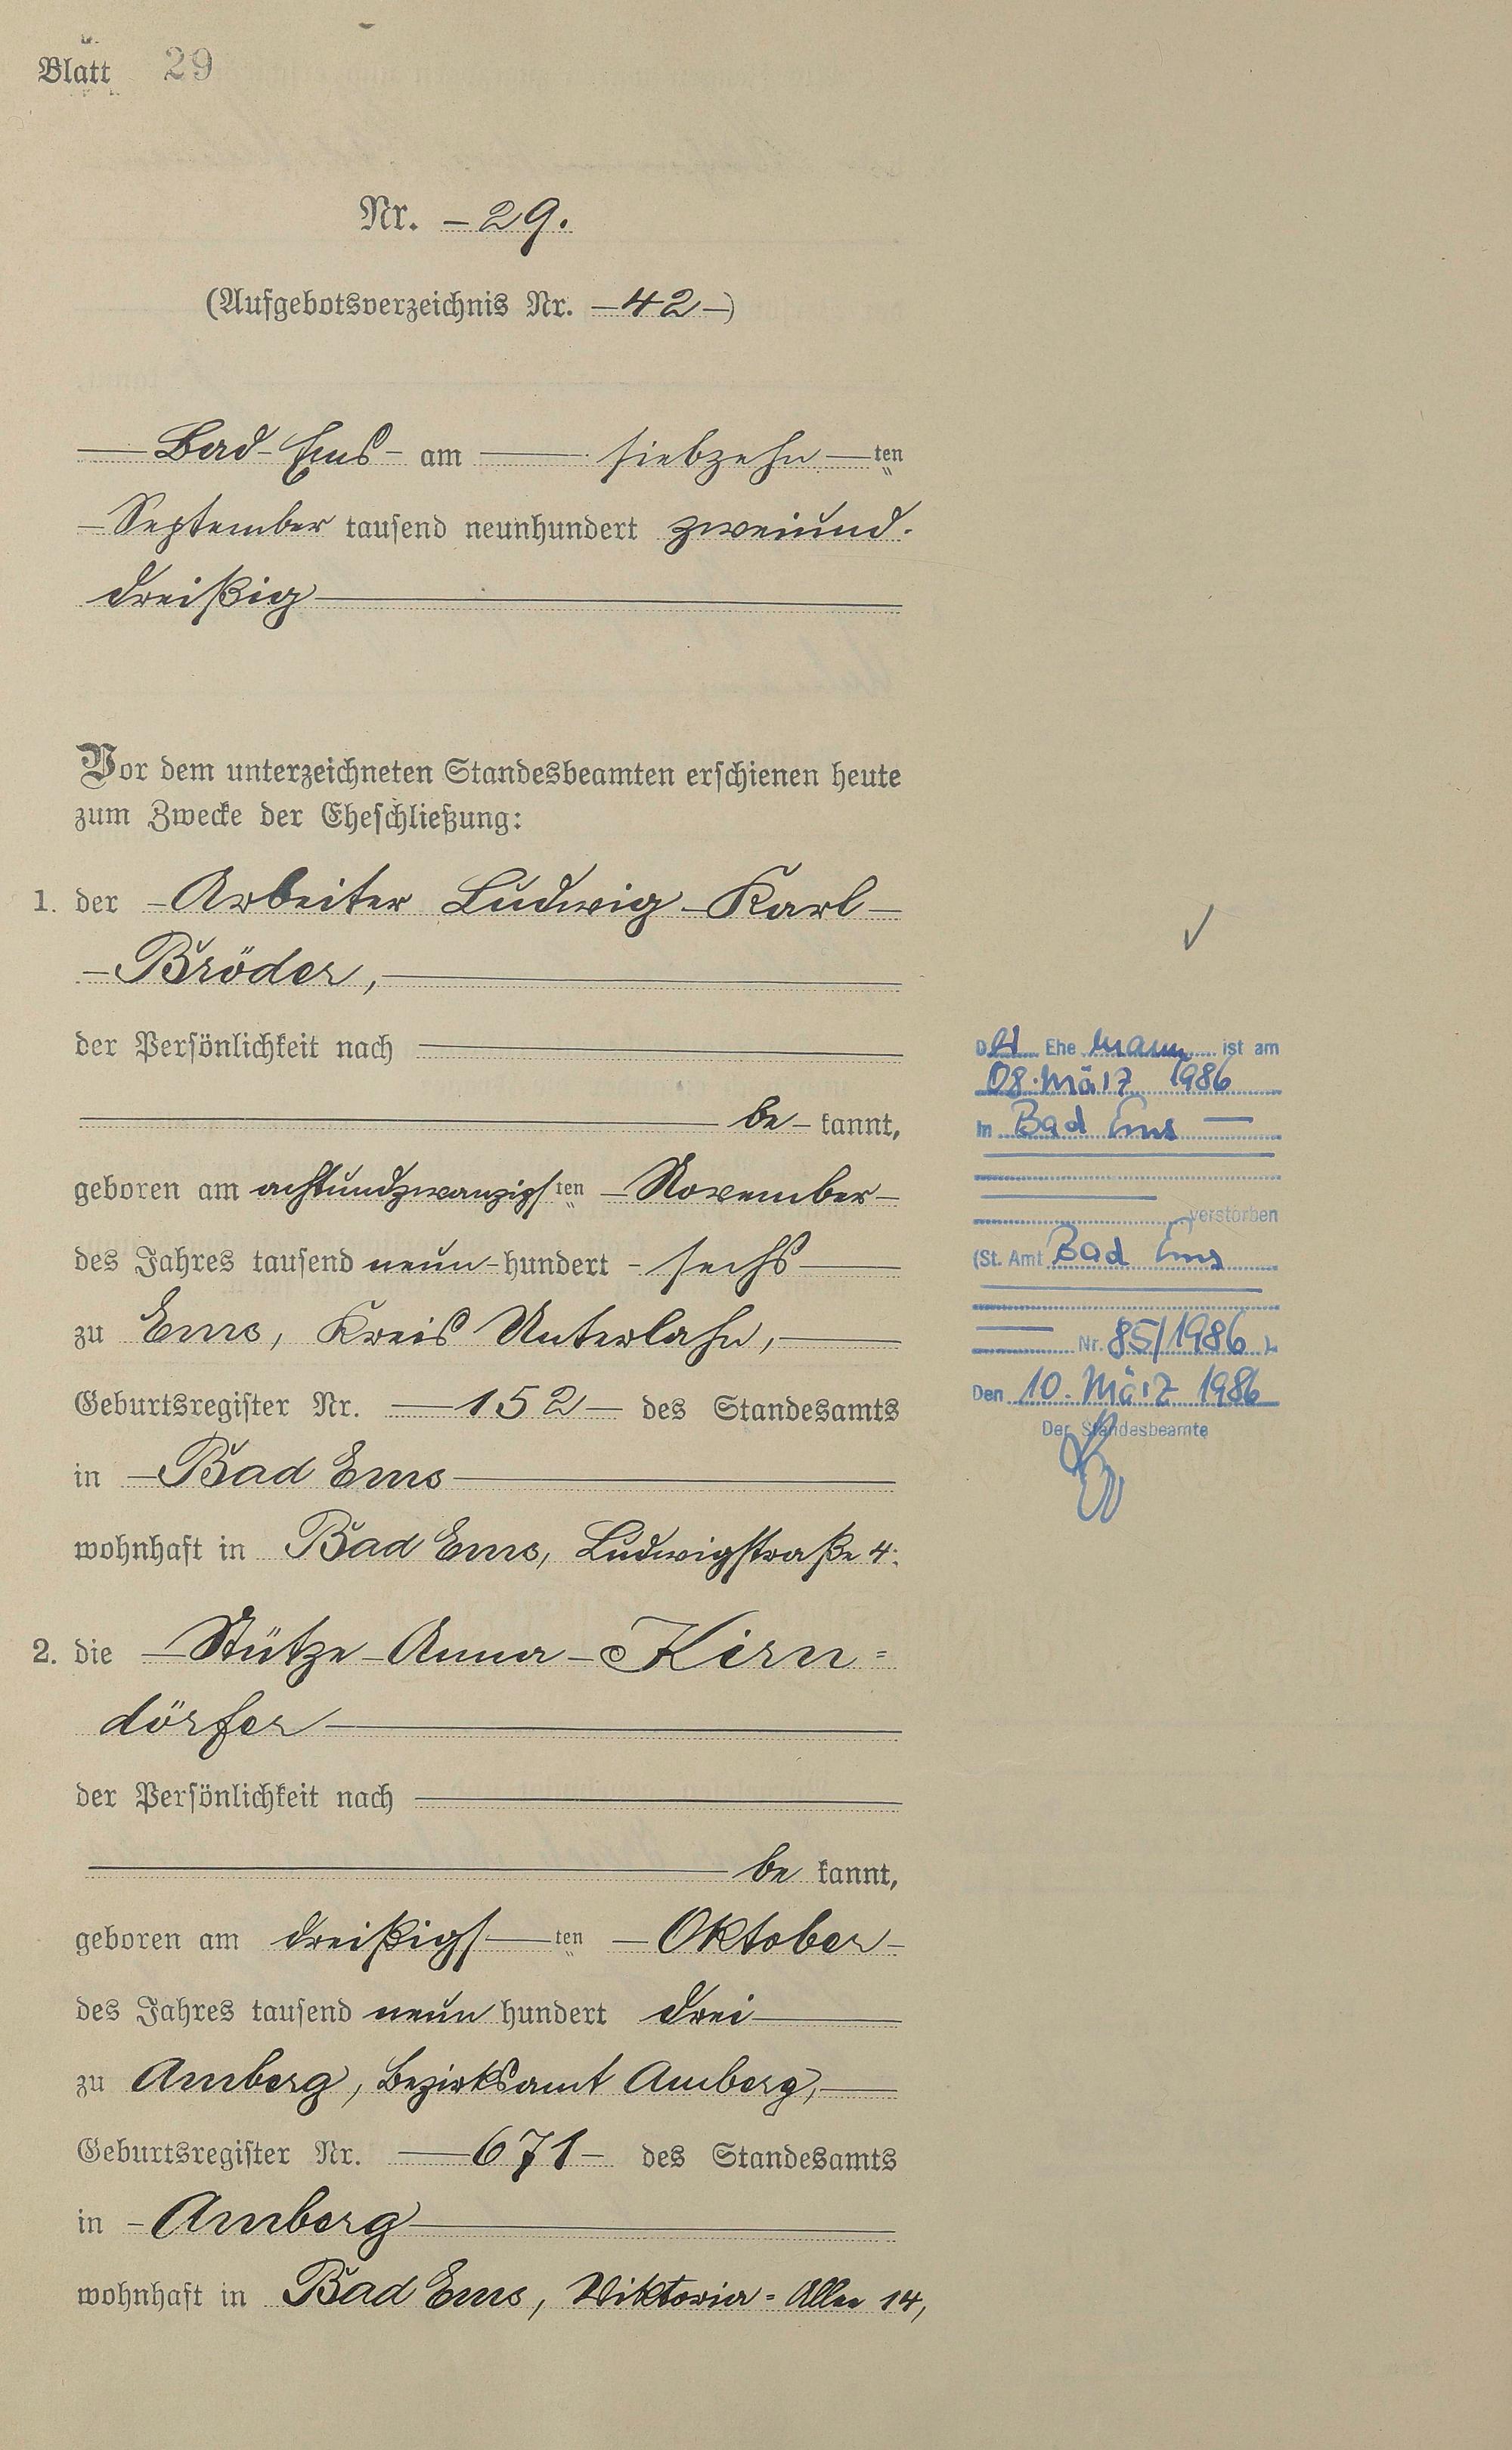 Blatt 29
Nr. – 29.
(Aufgebotsverzeichnis Nr. – 42 –)
— Bad Ems – am — siebzehn — ten
– September tausend neunhundert zweiund-
dreißig —
Vor dem unterzeichneten Standesbeamten erschienen heute
zum Zwecke der Eheschließung:
1. der – Arbeiter Ludwig – Karl –
– Bröder, —
der Persönlichkeit nach —
— be – kannt,
geboren am achtundzwanzigsten – November –
des Jahres tausend neun – hundert – sechs —
zu Ems, Kreis Unterlahn, —
Geburtsregister Nr. — 152 – des Standesamts
in – Bad Ems —
wohnhaft in Bad Ems, Ludwigstraße 4.
2. die – Stütze – Anna – Kirn=
dörfer —
der Persönlichkeit nach —
— be kannt,
geboren am dreißigs — ten – Oktober –
des Jahres tausend neun hundert drei —
zu Amberg, Bezirksamt Amberg, —
Geburtsregister Nr. — 671 – des Standesamts
in – Amberg —
wohnhaft in Bad Ems, Viktoria = Allee 14,
Der Ehe mann ist am
08. März 1986
in Bad Ems —
verstorben
(St. Amt Bad Ems
Nr. 85/1986 ).
Den 10. März 1986
Der Standesbeamte